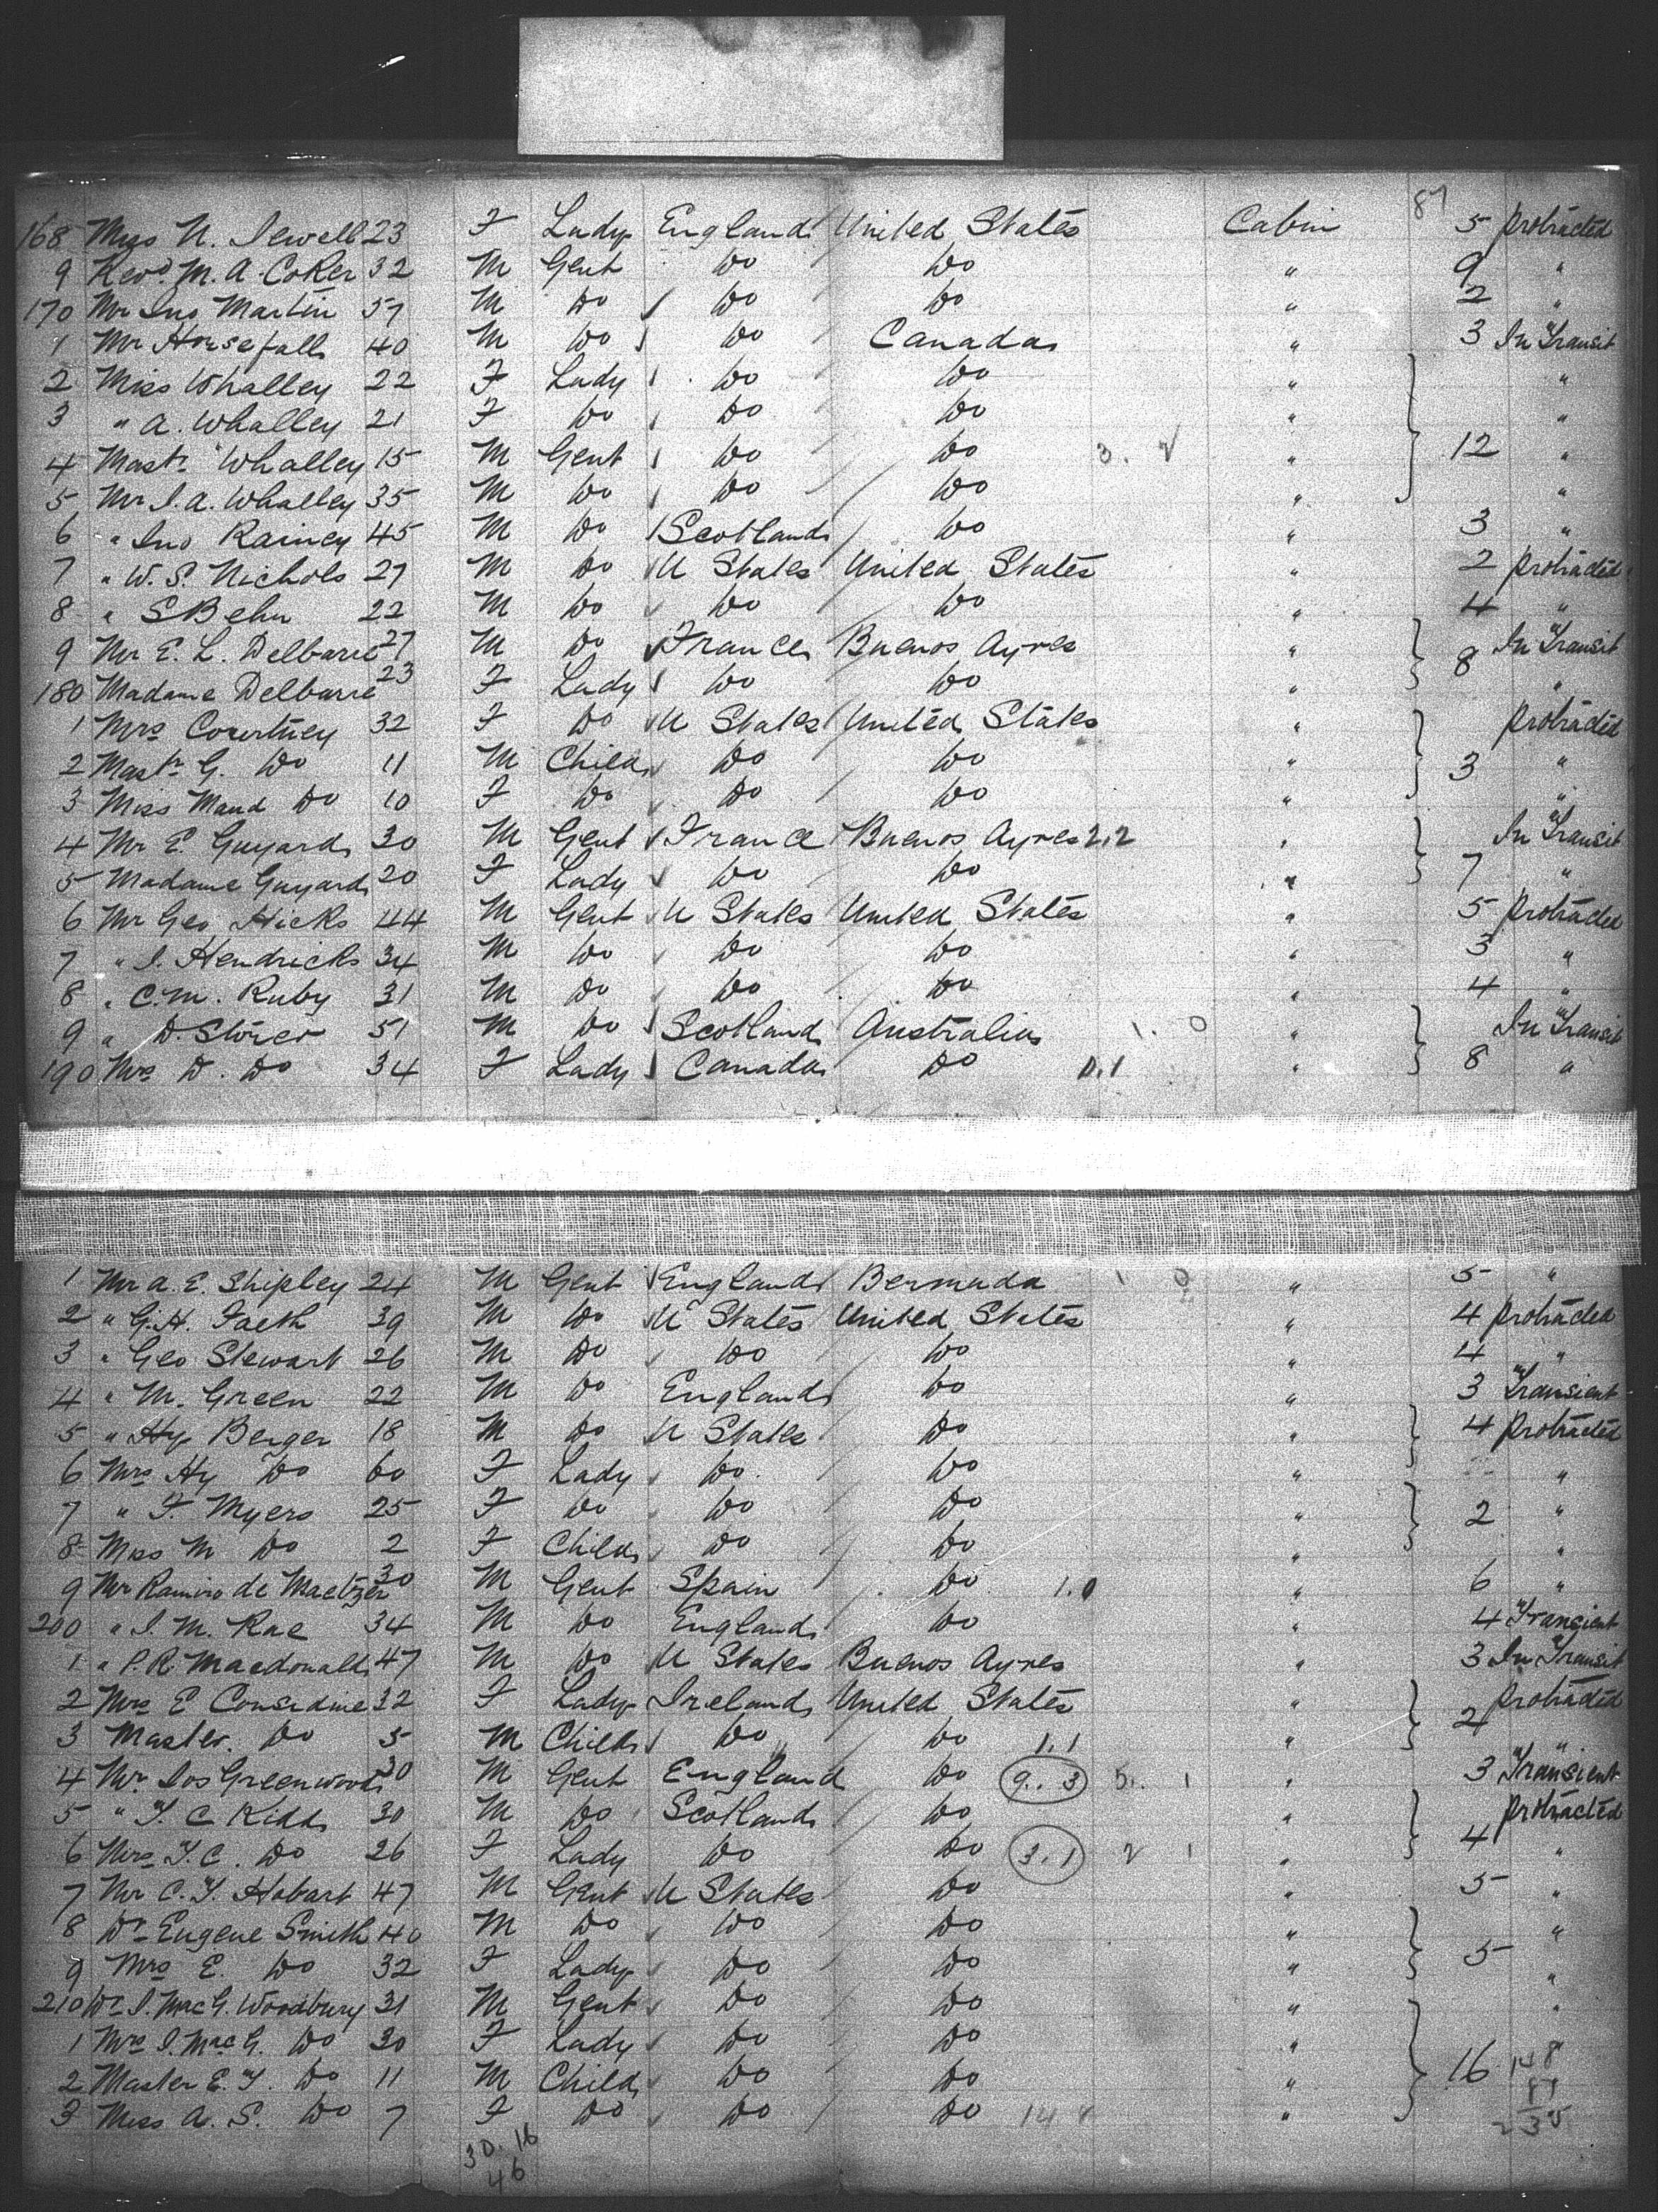 87
168 Miss N. Jewell 23 F Lady England United States Cabin 5 protracted
9 Revd. M. A. Coker 32 M Gent Do Do " 9 "
170 Mr Jno Martin 57 M Do Do Do " 2 "
1 Mr Horsefalls 40 M Do Do Canada " 3 In Transit
2 Miss Whalley 22 F Lady Do Do " "
3 " A. Whalley 21 F Do Do Do " "
4 Mastr Whalley 15 M Gent Do Do " 12 "
5 Mr J. A. Whalley 35 M Do Do Do " "
6 " Jno Rainey 45 M Do Scotland Do " 3 "
7 " W. S. Nichols 27 M Do U States United States " 2 protracted
8 " S Behn 22 M Do Do Do " 4 "
9 Mr E. L. Delbarre 27 M Do France Buenos Ayres " 8 In Transit
180 Madame Delbarre 23 F Lady Do Do " "
1 Mrs Courtney 32 F Do U States United States " protracted
2 Mastr G. Do 11 M Child Do Do " 3 "
3 Miss Maud Do 10 F Do Do Do " "
4 Mr E. Guyard 30 M Gent France Buenos Ayres 2.2 " In Transit
5 Madame Guyard 20 F Lady Do Do " 7 "
6 Mr Geo Hicks 44 M Gent U States United States " 5 protracted
7 " J. Hendricks 34 M Do Do Do " 3 "
8 " C. M. Ruby 31 M Do Do Do " 4 "
9 " D. Storer 51 M Do Scotland Australia 1. 0 " In Transit
190 Mrs D. Do 34 F Lady Canada Do 0.1 " 8 "
1 Mr A. E. Shipley 24 M Gent England Bermuda 1 0 " 5 "
2 " G. H. Faeth 39 M Do U States United States " 4 protracted
3 " Geo Stewart 26 M Do Do Do " 4 "
4 " M. Green 22 M Do England Do " 3 Transient
5 " Hy Berger 18 M Do U States Do " 4 protracted
6 Mrs Hy Do 60 F Lady Do Do " "
7 " F. Myers 25 F Do Do Do " 2 "
8 Miss M Do 2 F Child Do Do " "
9 Mr Ramiro de Maetzer 30 M Gent Spain Do 1.0 " 6 "
200 " J. M. Rae 34 M Do England Do " 4 Transient
1 " P. R. Macdonald 47 M Do U States Buenos Ayres " 3 In Transit
2 Mrs E Considine 32 F Lady Ireland United States " 2 protracted
3 Master Do 5 M Child Do Do 1.1 " "
4 Mr Jos Greenwood 30 M Gent England Do 9.. 3 5. 1 " 3 Transient
5 " T. C Kidd 30 M Do Scotland Do " protracted
6 Mrs T. C. Do 26 F Lady Do Do 3.1 2 1 " 4 "
7 Mr C. T. Hobart 47 M Gent U States Do " 5 "
8 Dr Eugene Smith 40 M Do Do Do " "
9 Mrs E. Do 32 F Lady Do Do " 5 "
210 Dr J. MacG. Woodbury 31 M Gent Do Do " "
1 Mrs J. MacG. Do 30 F Lady Do Do "
2 Master E. T. Do 11 M Child Do Do " 16 148
3 Miss A. S. Do 7 F Do Do Do " 87
235
30. 16
46